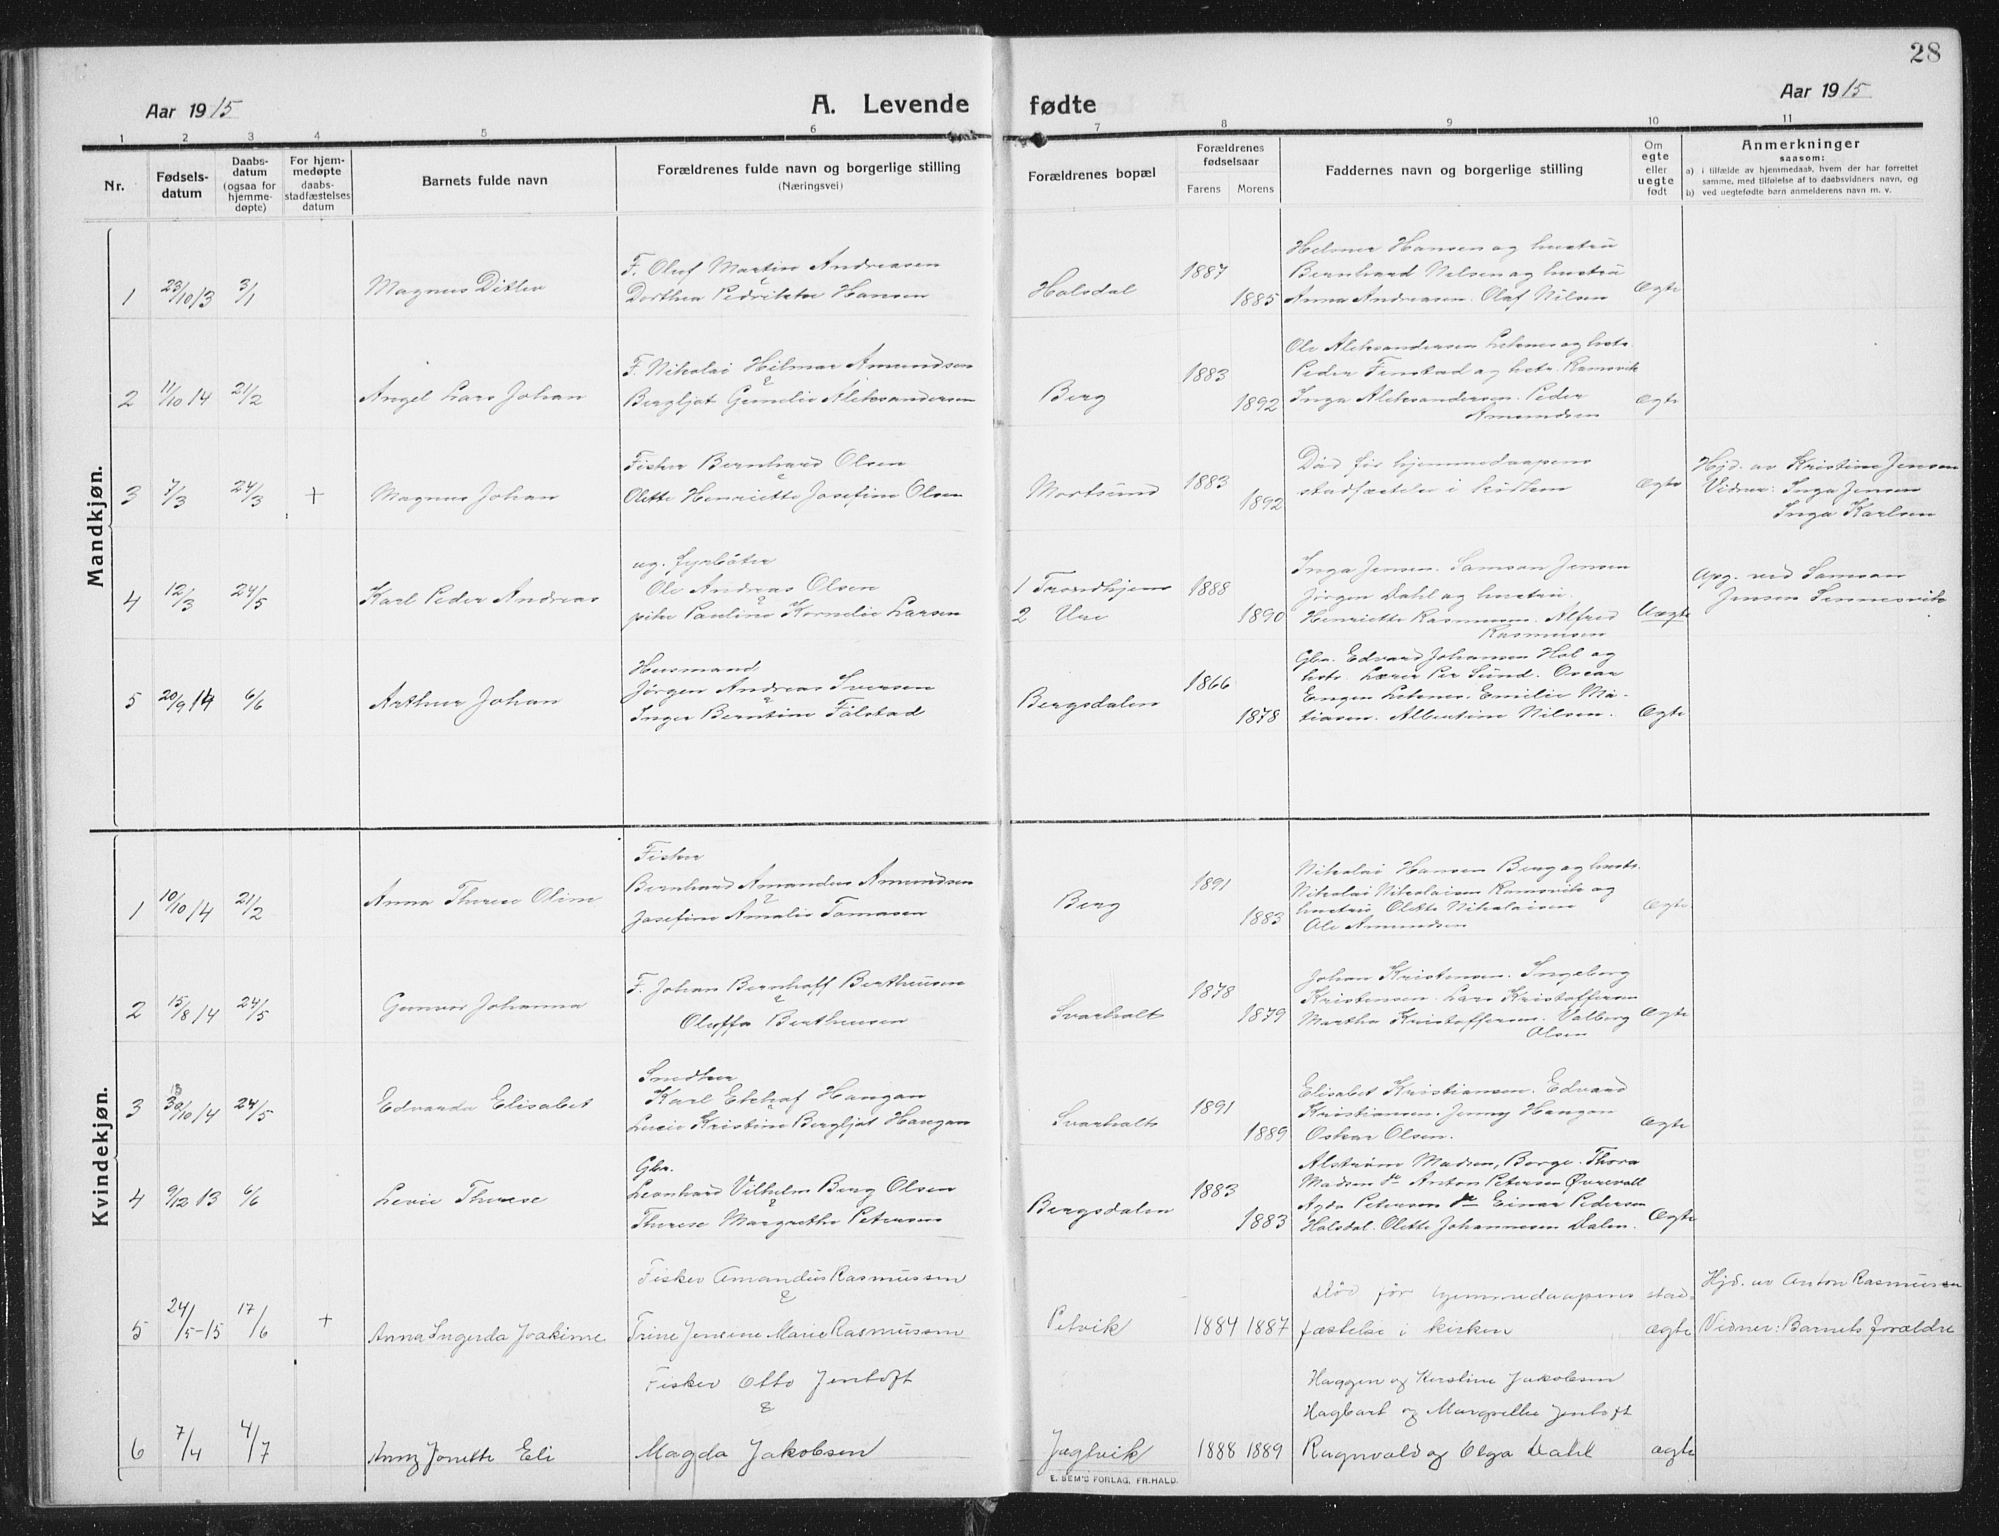 28
Aar 1915
A. Levende fødte
Aar 1915
1 2 3 4 5 6 7 8 9 10 11
Nr.
Fødsels-
datum
Daabs-
datum
(ogsaa for
hjemme-
døpte)
For hjem-
medøpte
daabs-
stadfæstelses
datum
Barnets fulde navn
Forældrenes fulde navn og borgerlige stilling
(Næringsvei)
Forældrenes bopæl
Forældrenes
fødselsaar
Farens Morens
Faddernes navn og borgerlige stilling
Om
egte
eller
uegte
født
Anmerkninger
saasom:
a) i tilfælde av hjemmedaab, hvem der har forrettet
samme, med tilføielse af to daabsvidners navn, og
b) ved uegtefødte barn anmelderens navn m. v.
Mandkjøn.
1 23/10 13 3/1 Magnus Ditlev
F. Oluf Martin Andreasen
Dorthea Hansen
Halsdal 1887 1885
Helmer Hansen og hustru
Bernhard Nilsen og hustru
Anna Andreasen. Olaf Nilsen
Ægte
2 11/10 14 21/2 Angel Lars Johan
F. Nikolai Hilmar Amundsen
&
Bergljot Gunelie Aleksandersen
Berg 1883 1892
Ole Aleksandersen og hstr.
Peder Finstad og hstr. Ramsvik
Inga Aleksandersen. Peder
Amundsen
Ægte
3 7/3 24/3 + Magnus Johan
Fisker Bernhard Olsen
&
Olette Henriette Josefine Olsen
Mortsund 1883 1892
Död før hjemmedaapens
stadfæstelse i kirken
Ægte
Hjd. av Kristine Jensen
Vidner: Inga Jensen
Inga Karlsen
4 12/3 24/5 Karl Peder Andreas
ug. fyrböter
Ole Andreas Olsen
&
pike Pauline Kornelie Larsen
1 Trondhjem
2 Ure
1888 1890
Inga Jensen. Samson Jensen
Jörgen Dahl og hustru.
Henriette Rasmussen. Alfred
Rasmussen
Uægte
Apg. ved Samson
Jensen Sennesvik
5 20/9 14 6/6 Arthur Johan
Husmand
Jørgen Andreas Iversen
&
Inger Berntine Falstad
Bergsdalen 1866 1878
Gbr. Edvard Johansen Hol og
hstr. Lærer Per Sund. Oscar
Emilie Ma-
tiasen. Albertine Nilsen.
Ægte
Kvindekjøn.
1 10/10 14 21/2 Anna Therese Oline
Fisker
Bernhard Amandus Amundsen
&
Josefine Amalie Tomasen
Berg 1891 1883
Nikolai Hansen Berg og hustr.
Nikolai Nikolaisen Ramsvik og
hustru Olette Nikolaisen
Ole Amundsen
Ægte
2 15/8 14 24/5 Gunvor Johanna
F. Johan Bernhoff Bertheusen
&
Oluffa Bertheusen
Svarholt 1878 1879
Johan Kristensen. Ingeborg
Kristensen. Lars Kristoffersen
Martha Kristoffersen. Valborg
Olsen
Ægte
3 30/10 14 24/5 Edvarda Elisabet
Snedker
Karl Haugan
&
Lucie Kristine Bergljot Haugan
Svarholt 1891 1889
Elisabet Kristiansen. Edvard
Kristiansen. Jenny Haugan
Oskar Olsen.
Ægte
4 9/12 13 6/6 Levie Therese
Gbr.
Leonhard Vilhelm Berg Olsen
&
Therese Margrethe Petersen
Bergsdalen 1883 1883
Alstrøm Madsen, Borge. Thora
Madsen Anton Petersen Øvrevoll
Agda Petersen Einar Pedersen
Halsdal. Olette Johannesen Dalen.
Ægte
5 24/5-15 17/6 + Anna Ingerda Joakime
Fisker Amandus Rasmussen
&
Trine Jensine Marie Rasmussen
Petvik 1884 1887
död før hjemmedaapens stad-
fæstelse i kirken
ægte
Hjd. av Anton Rasmussen
Vidner: Barnets forældre
6 7/4 4/7 Anny Jonette Eli
Fisker Otto Jentoft
&
Magda Jakobsen
Jaglvik 1888 1889
Haggen og Kirstine Jakobsen
Hagbart og Margrethe Jentoft
Ragnvald og Olga Dahl
ægte
E. SEM'S FORLAG, FR.HALD.